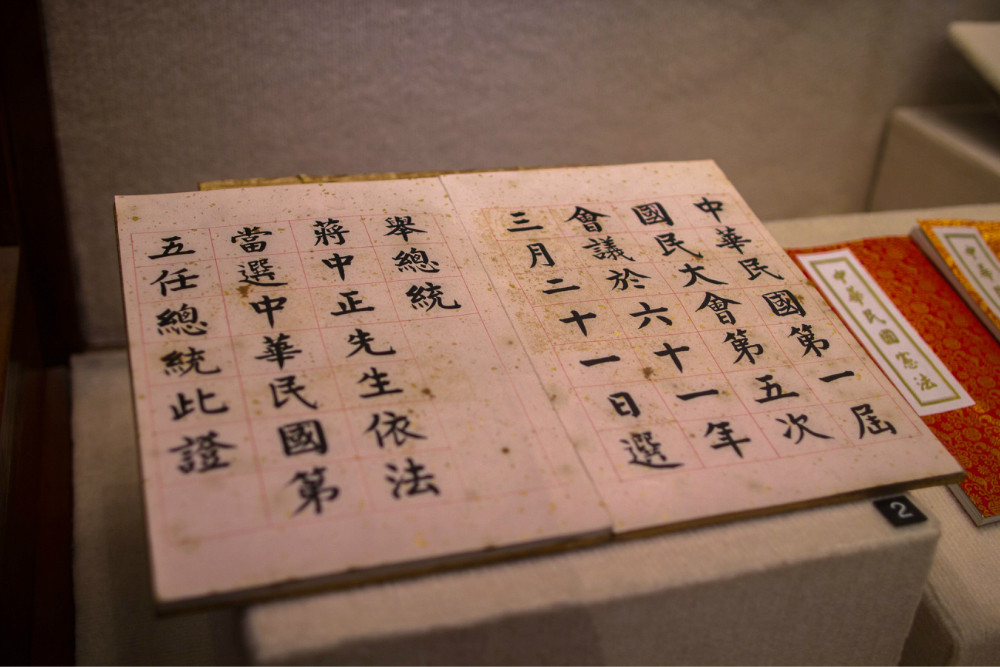 中華民國第一屆
國民大會第五次
會議於六十一年
三月二十一日選
舉總統
蔣中正先生依法
當選中華民國第
五任總統此證
中華民國憲法
2